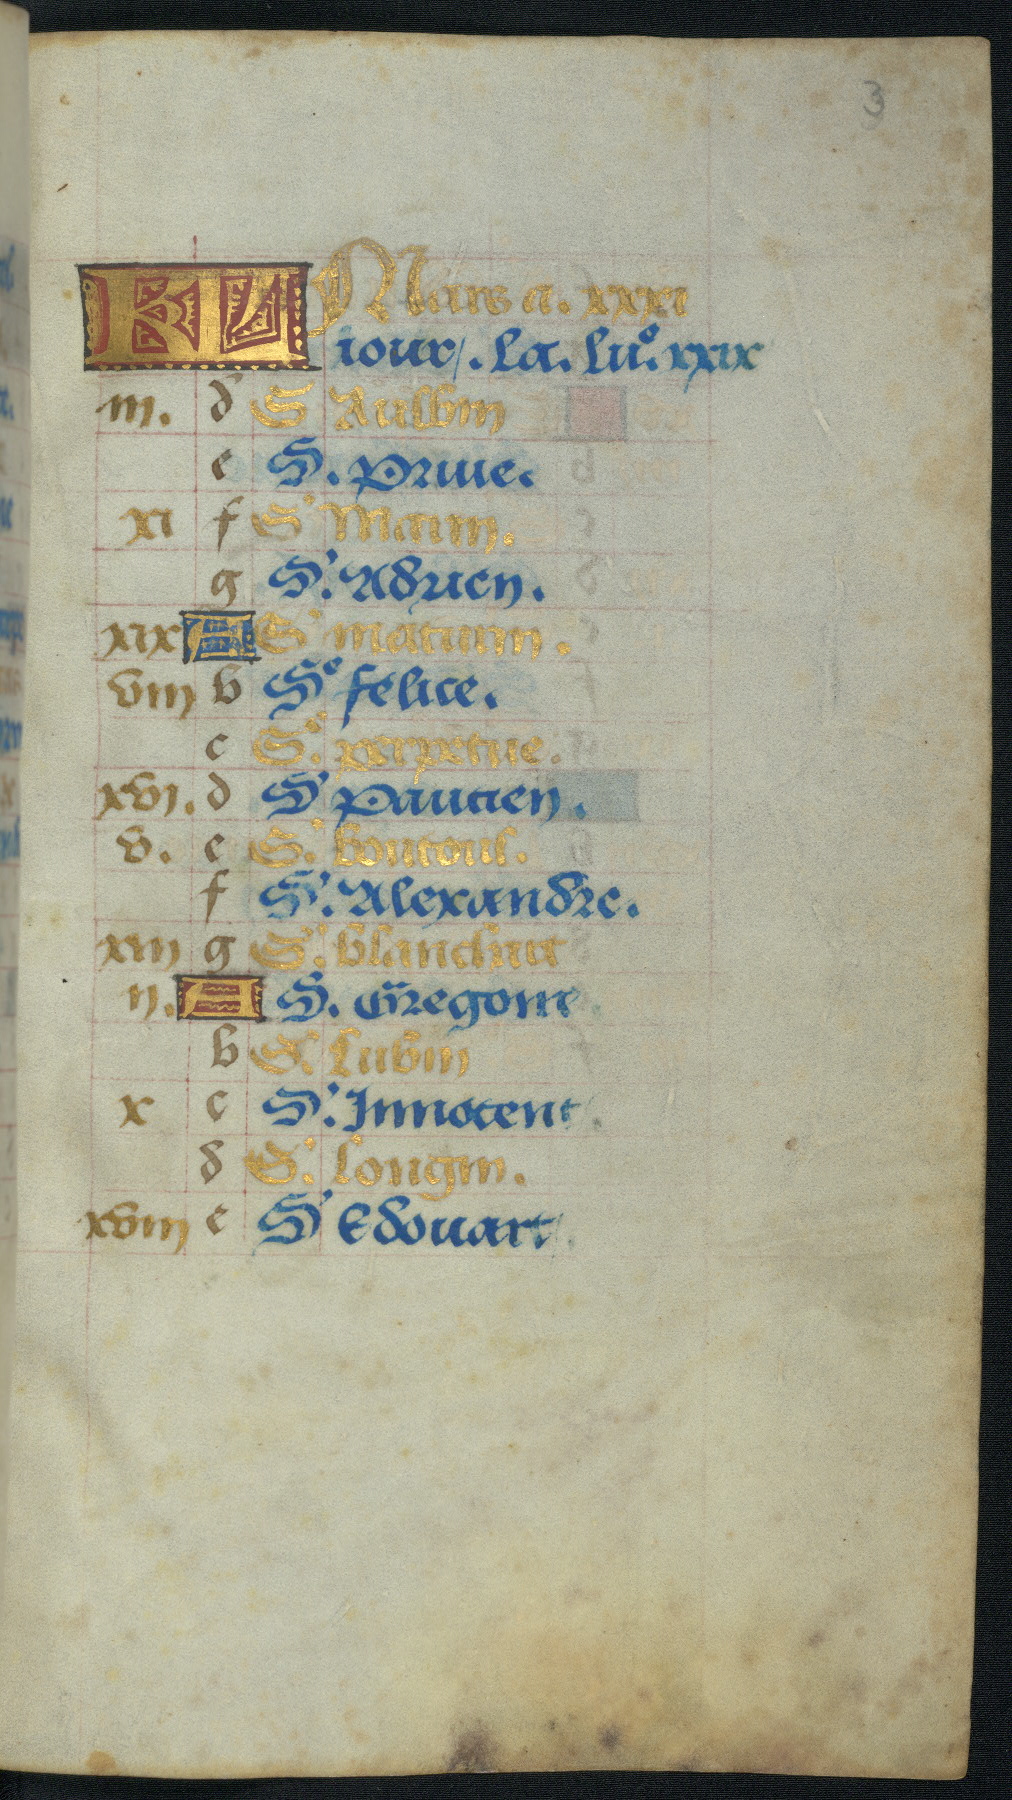 3
KL Mars a. xxxi
iour. La. lu. xxix
iii. d S Aulbin
e S. priue.
xi f S Marin.
g S. Adrien.
xix A S maturin.
viii b Se felice.
c S. perpetue.
xvi. d S pancien.
v. e S. boutous.
f S. Alexandre.
xiii g S. blanchart
ii. A S. Gregoire
b S. Lubin
x c S. Innocent.
d S. Longin.
xviii e S Edouart